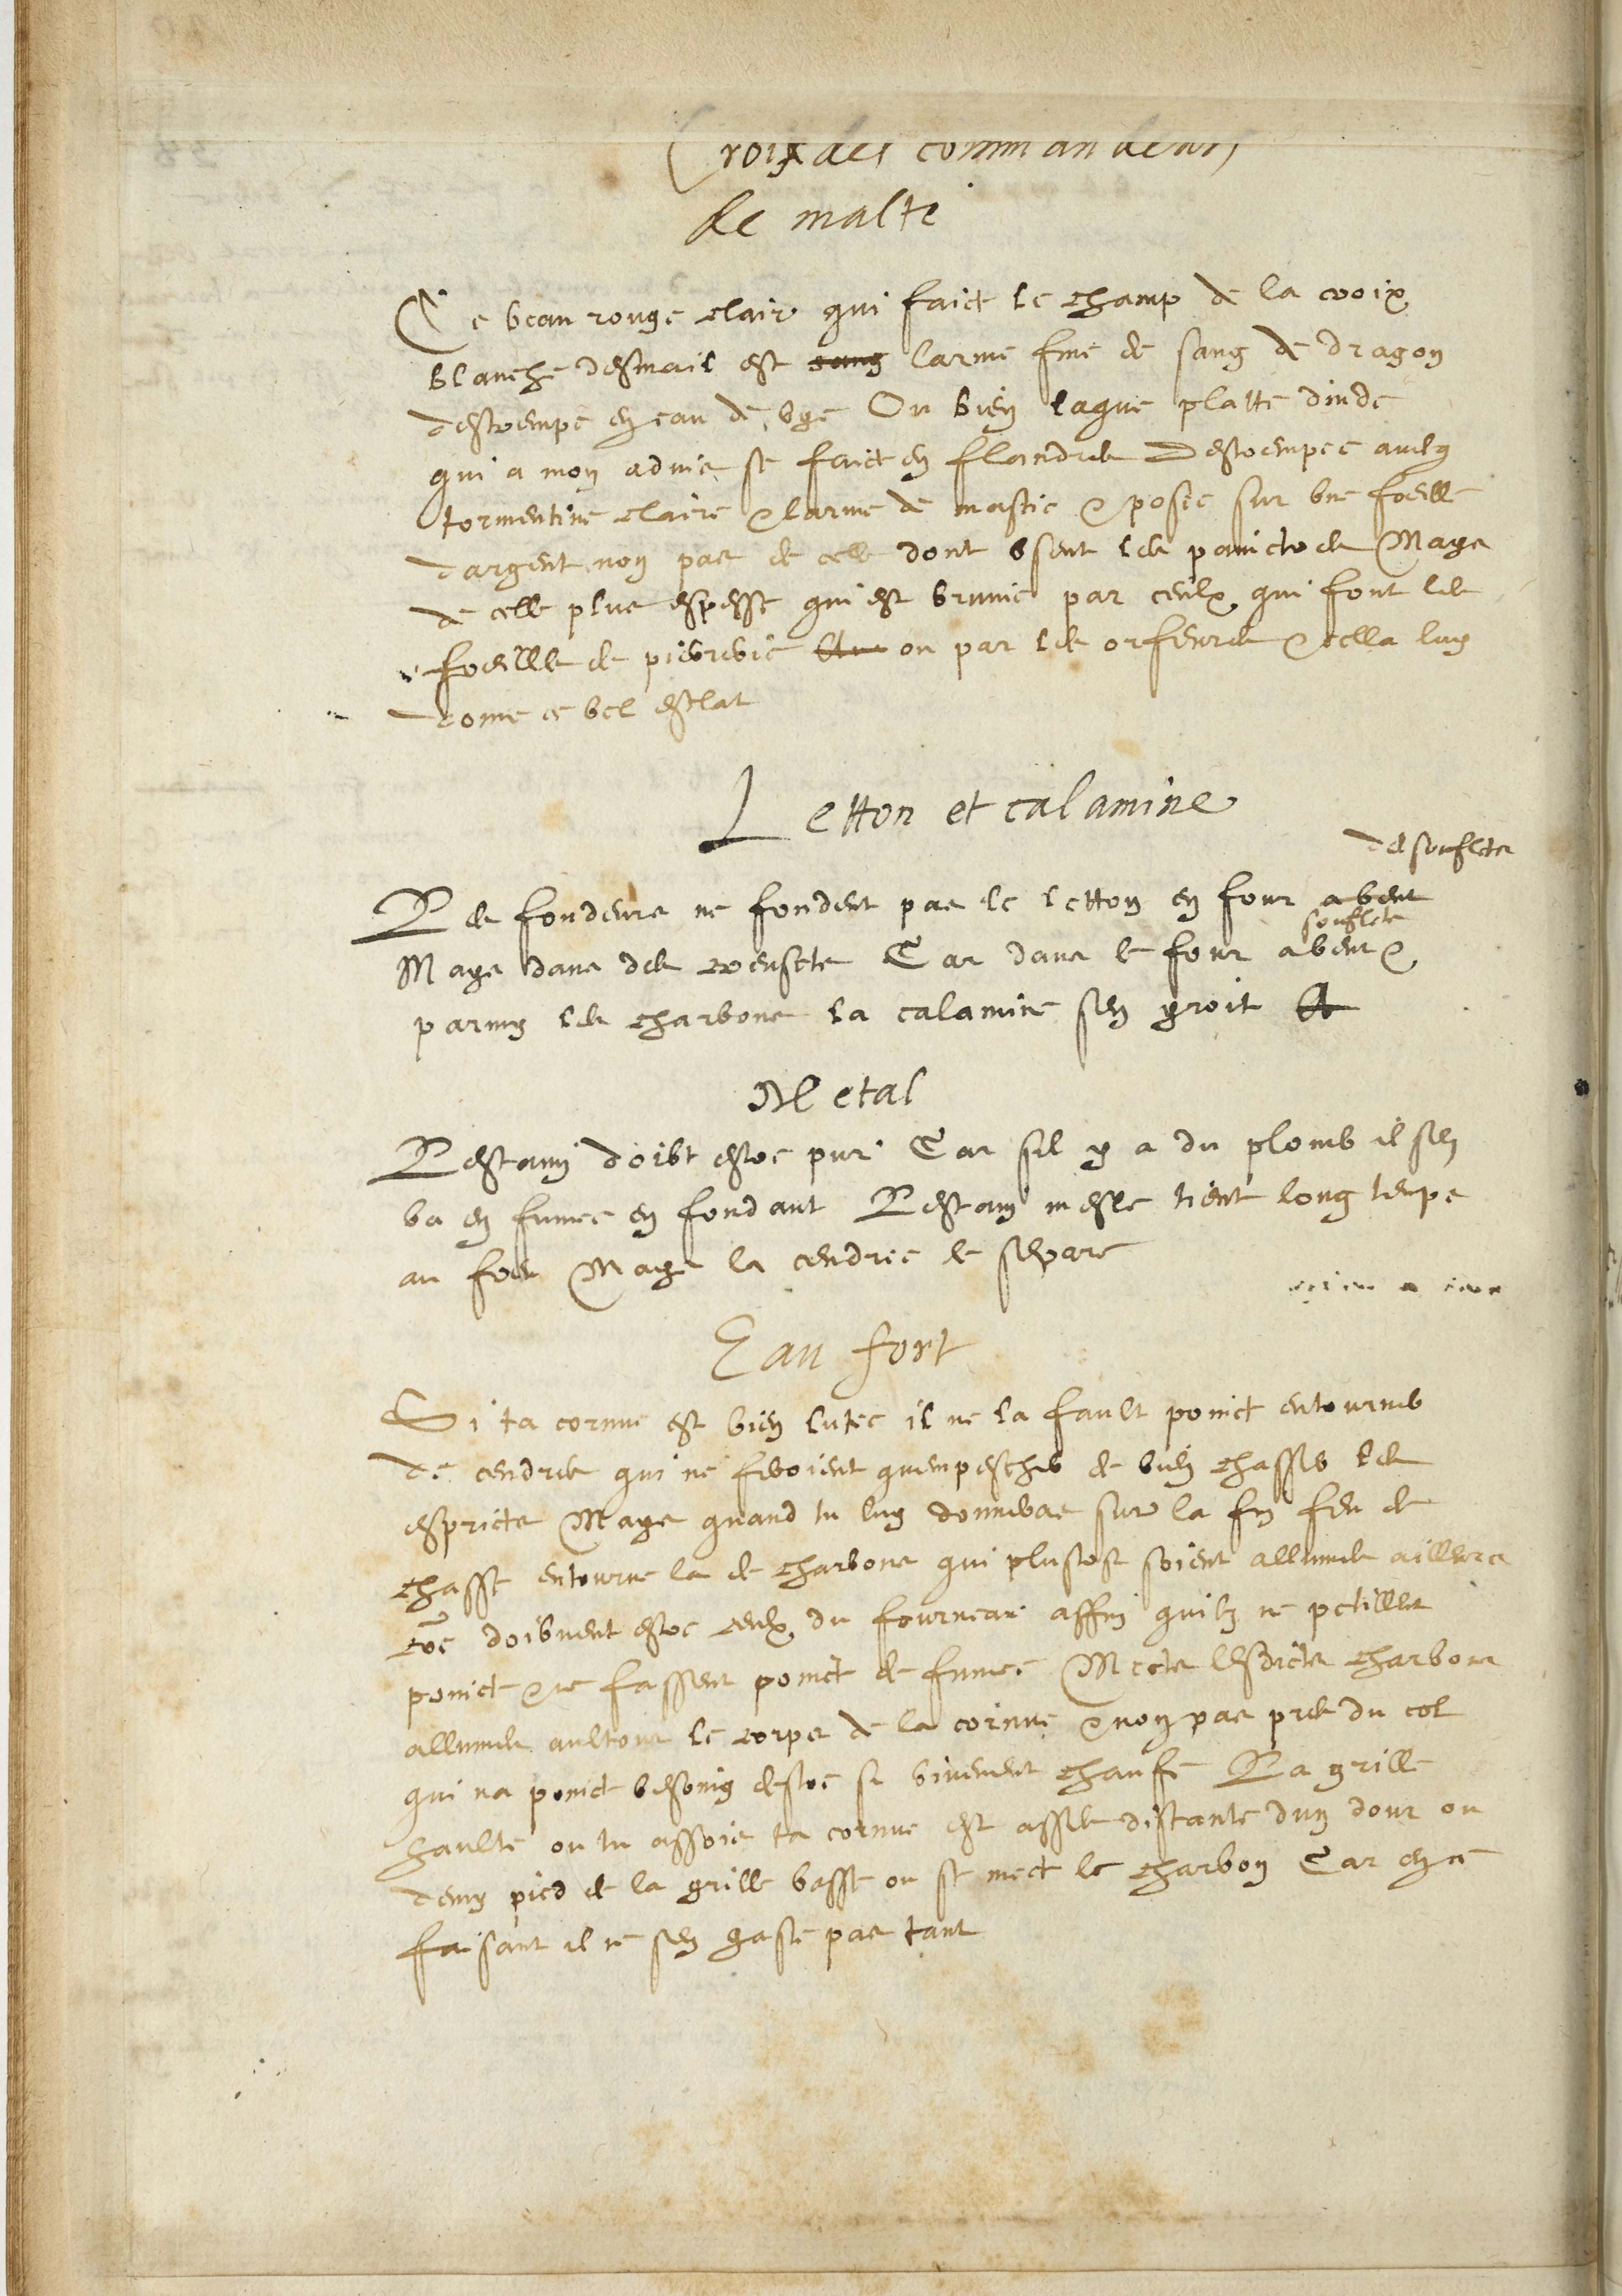 Croix des commandeurs
de malte
Ce beau rouge clair qui faict le champ de la croix
blanche desmail est sang larme fine de sang de dragon
destrempe en eau de vye Ou bien laque platte dinde
qui a mon advis se faict en flandres Destrempee avecq
tormentine claire & larme de mastic & posee sur une foeille
dargent non pas de celle dont usent les painctres Mays
de celle plus espesse qui est brunie par ceulx qui font les
foeilles de pierrerie ou par les orfeuvres & cella luy
donne ce bel esclat
Letton et calamine
de souflets
Les fondeurs ne fondent pas le letton en four a vent
souflets
Mays dans des creusets Car dans le four a vent &
parmy les charbons la calamine sen yroit Et
Metal
Lestain doibt estre pur Car sil y a du plomb il sen
va en fumee en fondant Lestain mesle tient long temps
au foeu Mays la cendree le separe
Eau fort
Si ta cornue est bien lutee il ne la fault poinct entourner
de cendres qui ne feroient quempescher de bien chasser les
esprits Mays quand tu luy donneras sur la fin feu de
chasse entourne la de charbons qui plustost soient allumes ailleurs
co{mm}e doibvent estre ceulx du fourneau affin quilz ne petillent
poinct & ne fassent poinct de fumee Mects lesdicts charbons
allumes aultour le corps de la cornue & non pas pres du col
qui na poinct besoing destre si vivement chaufe La grille
haulte ou tu assois ta cornue est asses distante dun dour ou
demy pied de la grille basse ou se mect le charbon Car en ce
faisant il ne sen gaste pas tant